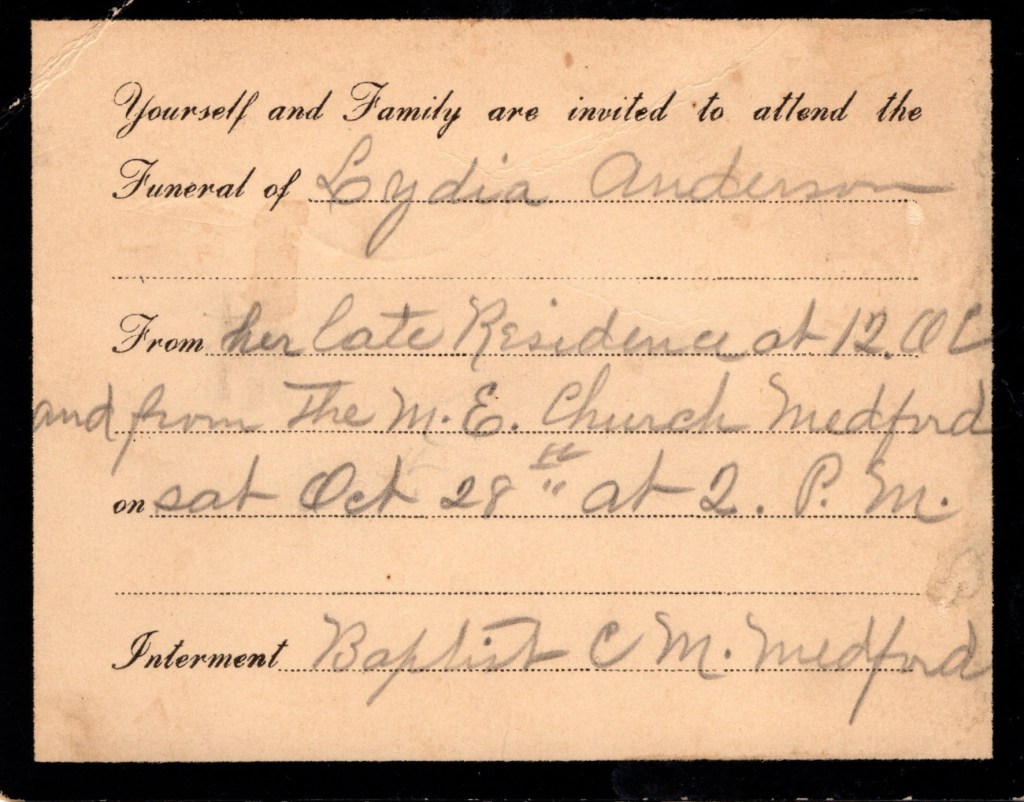 Yourself and Family are invited to attend the
Funeral of Lydia Anderson
From her late Residence at 12. OC
and from The M. E. Church Medford
on sat Oct 28th at 2. P. M.
Interment Baptist C M. Medford